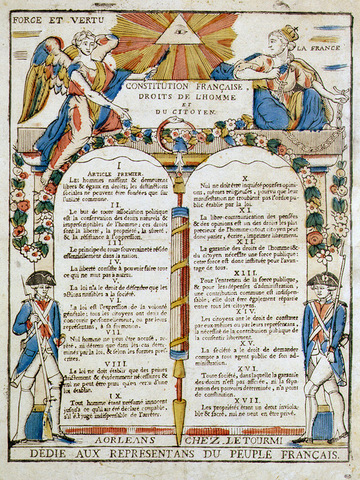 FORCE ET VERTU
LA FRANCE
CONSTITUTION FRANÇAISE,
DROITS DE L'HOMME
ET
DU CITOYEN.
I
ARTICLE PREMIER.
Les hommes naissent & demeurent
libres & égaux en droits; les distinctions
sociales ne peuvent être fondées que sur
l'utilité commune.
II.
Le but de toute association politique
est la conservation des droits naturels &
imprescriptibles de l'homme; ces droits
sont la liberté, la propriété, la sûreté
& la résistance à l'oppression.
III.
Le principe de toute souveraineté réside
essentiellement dans la nation.
IV.
La liberté consiste à pouvoir faire tout
ce qui ne nuit pas à autrui.
V.
La loi n'a le droit de défendre que les
actions nuisibles à la société.
VI.
La loi est l'expression de la volonté
générale; tous les citoyens ont droit de
concourir personnellement, ou par leurs
représentans, à sa formation.
VII.
Nul homme ne peut être accusé, ar-
rêté, ni détenu que dans les cas déter-
minés par la loi, & selon les formes pres-
crites.
VIII.
La loi ne doit établir que des peines
strictement & évidemment nécessaires &
nul ne peut être puni qu'en vertu d'une
loi établie.
IX.
Tout homme étant présumé innocent
jusqu'à ce qu'il ait été déclaré coupable,
s'il est jugé indispensable de l'arrêter.
X.
Nul ne doit être inquiété pour ses opinions,
mêmes religieuses, pourvu que leur
manifestation ne troublent pas l'ordre public
établie par la loi.
XI.
La libre communication des pensées
& des opinions est un des droits les plus
précieux de l'homme: tout citoyen peut
donc parler, écrire, imprimer librement.
XII.
La garantie des droits de l'homme &
du citoyen nécessite une force publique:
cette force est donc instituée pour l'avan-
tage de tous.
XIII.
Pour l'entretien de la force publique,
& pour les dépenses d'administration,
une contribution commune est indispen-
sable; elle doit être également répartie
entre tous les citoyens.
XIV.
Les citoyens ont le droit de constater
par eux-mêmes ou par leurs représentans,
la nécessité de la contribution publique de
la consentir librement.
XV.
La société a le droit de demander
compte à tout agent public de son ad-
ministration.
XVI.
Toute société, dans laquelle la garantie
des droits n'est pas assurée, ni la sépa-
ration des pouvoirs déterminée, n'a point
de constitution.
XVII.
Les propriétés étant un droit inviola-
ble & sacré, nul ne peut en être privé.
A ORLEANS CHEZ LETOURMI
DÉDIÉ AUX REPRESENTANS DU PEUPLE FRANÇAIS.